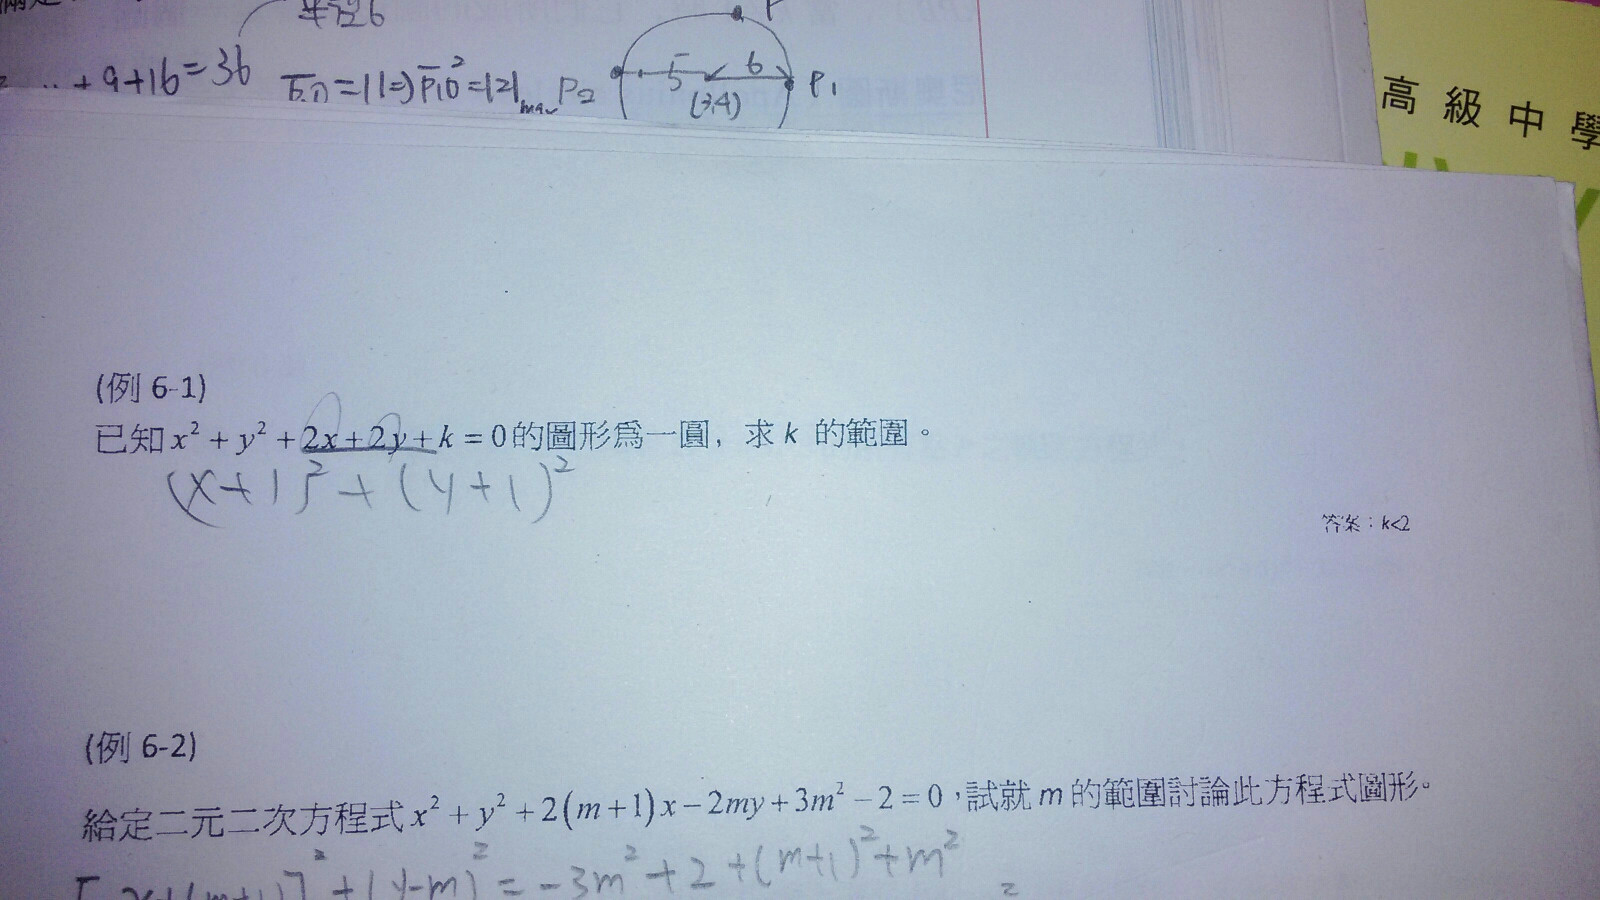 半徑6
+9+16=36
=11⇒P₁O²=121
max
P₂
5
6
(3,4)
P₁
P
高級中學
(例 6-1)
已知 x² + y² + 2x + 2y + k = 0 的圖形為一圓，求 k 的範圍。
(x+1)² + (y+1)²
答案：k<2
(例 6-2)
給定二元二次方程式 x² + y² + 2(m+1)x − 2my + 3m² − 2 = 0，試就 m 的範圍討論此方程式圖形。
[x+(m+1)]² + (y-m)² = -3m² + 2 + (m+1)² + m²
2